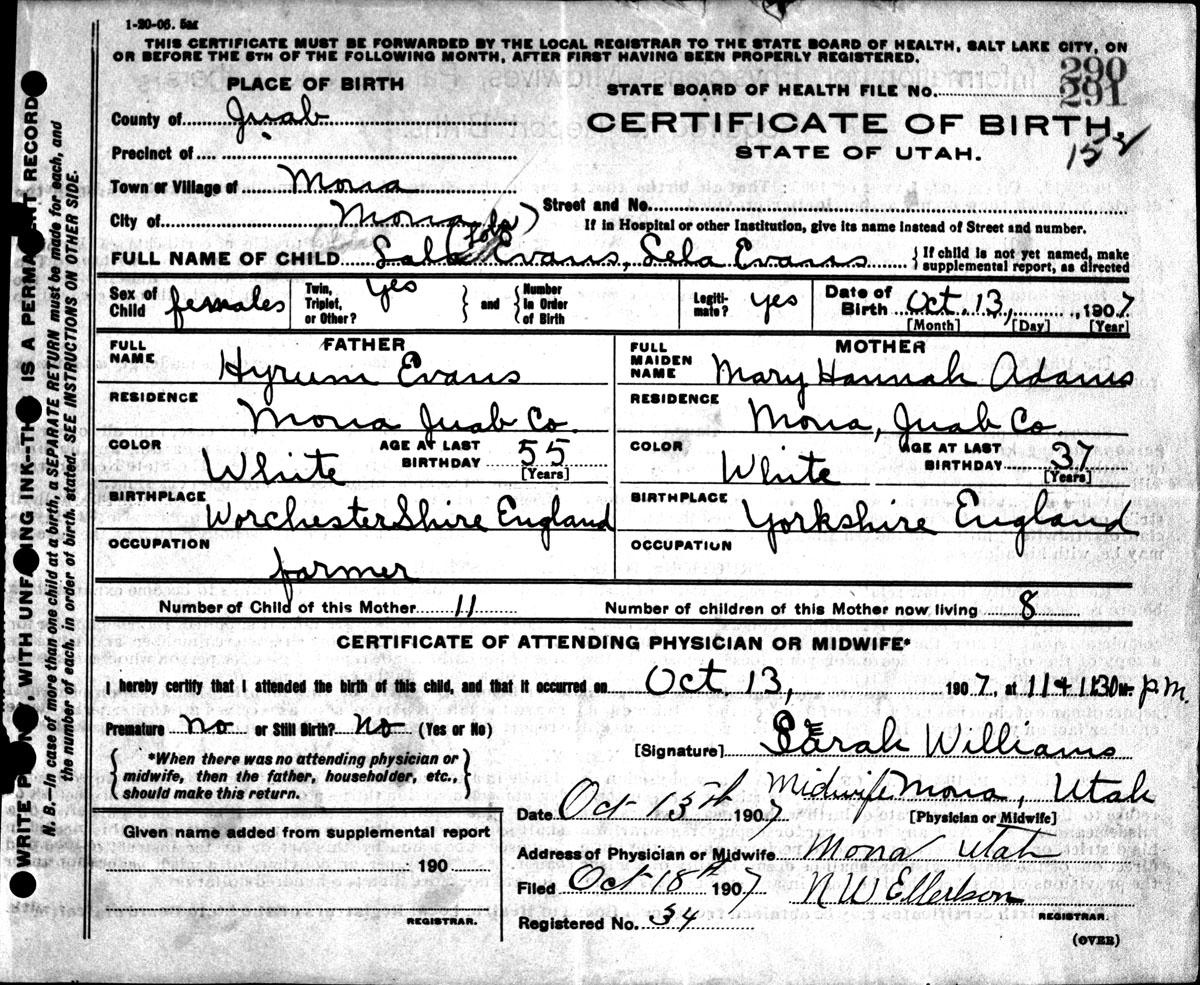 1-20-06. 5m
THIS CERTIFICATE MUST BE FORWARDED BY THE LOCAL REGISTRAR TO THE STATE BOARD OF HEALTH, SALT LAKE CITY, ON
OR BEFORE THE 5TH OF THE FOLLOWING MONTH, AFTER FIRST HAVING BEEN PROPERLY REGISTERED.
290
PLACE OF BIRTH
STATE BOARD OF HEALTH FILE NO. 291
County of Juab
CERTIFICATE OF BIRTH
Precinct of
STATE OF UTAH.
Town or Village of Mona
Street and No.
City of Mona
If in Hospital or other Institution, give its name instead of Street and number.
(Lola)
FULL NAME OF CHILD Lala Evans, Lela Evans { If child is not yet named, make supplemental report, as directed
Sex of Child females
Twin, Triplet, or Other? Yes } and { Number in Order of Birth
Legitimate? yes
Date of Birth Oct. 13, 1907
[Month] [Day] [Year]
FATHER
FULL NAME Hyrum Evans
RESIDENCE Mona Juab Co.
COLOR White AGE AT LAST BIRTHDAY 55 [Years]
BIRTHPLACE WorchesterShire England
OCCUPATION farmer
MOTHER
FULL MAIDEN NAME Mary Hannah Adams
RESIDENCE Mona, Juab Co.
COLOR White AGE AT LAST BIRTHDAY 37 [Years]
BIRTHPLACE Yorkshire England
OCCUPATION
Number of Child of this Mother 11 Number of children of this Mother now living 8
CERTIFICATE OF ATTENDING PHYSICIAN OR MIDWIFE*
I hereby certify that I attended the birth of this child, and that it occurred on Oct. 13, 1907, at 11 & 11:30 M. P.M.
Premature no or Still Birth? No (Yes or No)
[Signature] Sarah Williams
{ *When there was no attending physician or midwife, then the father, householder, etc., should make this return. }
Midwife Mona, Utah
Date Oct 13th 1907 [Physician or Midwife]
Given name added from supplemental report
190
REGISTRAR.
Address of Physician or Midwife Mona Utah
Filed Oct 18th 1907 N W Ellertson
REGISTRAR.
Registered No. 34
(OVER)
WRITE PLAINLY WITH UNFADING INK--THIS IS A PERMANENT RECORD
N. B.—In case of more than one child at a birth, a SEPARATE RETURN must be made for each, and
the number of each, in order of birth, stated. SEE INSTRUCTIONS ON OTHER SIDE.